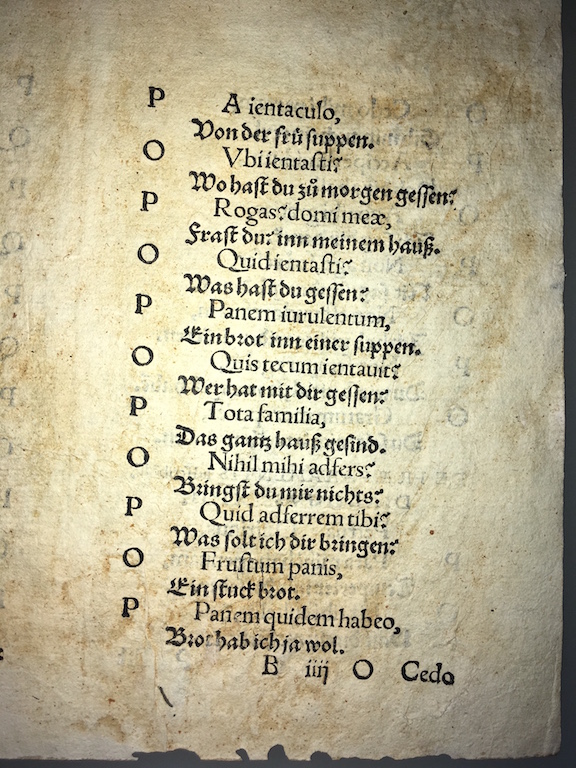 P A ientaculo,
Von der frů suppen.
O Vbi ientasti?
Wo hast du zů morgen gessen?
P Rogas? domi meæ,
Frast du? inn meinem hauß.
O Quid ientasti?
Was hast du gessen?
P Panem iurulentum,
Ein brot inn einer suppen.
O Quis tecum ientauit?
Wer hat mit dir gessen?
P Tota familia,
Das gantz hauß gesind.
O Nihil mihi adfers?
Bringst du mir nichts?
P Quid adferrem tibi?
Was solt ich dir bringen?
O Frustum panis,
Ein stuck brot.
P Panem quidem habeo,
Brot hab ich ja wol.
B iiij O Cedo